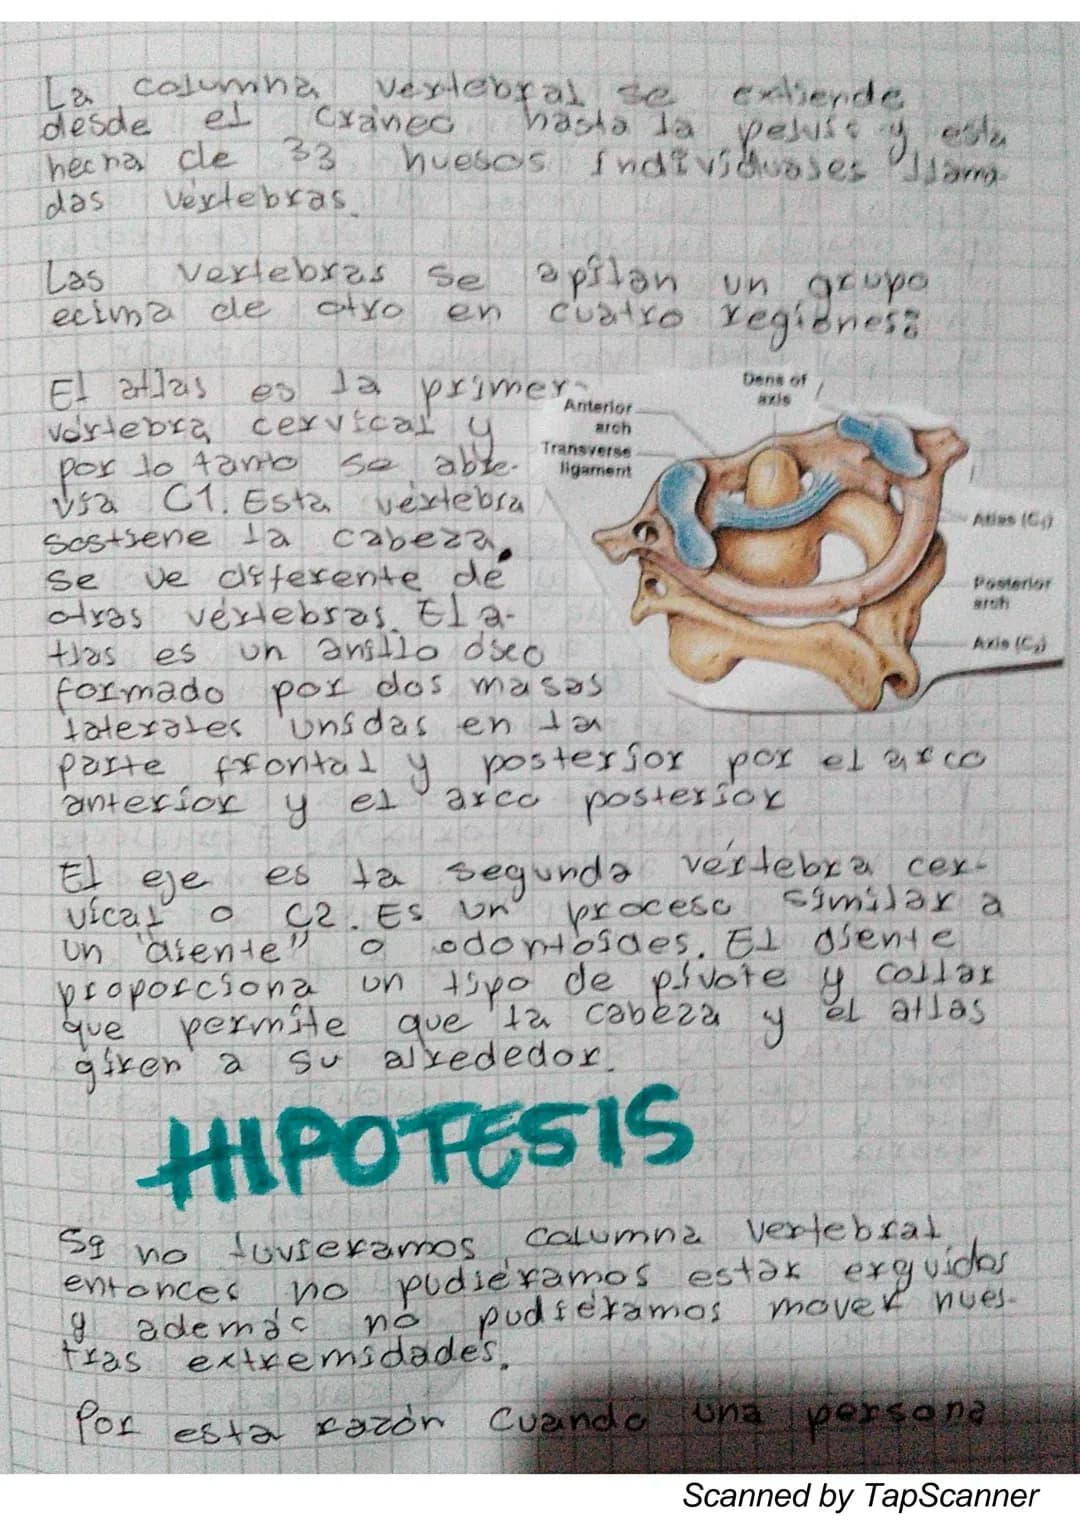 La columna vertebral se extiende
desde el cráneo hasta la pelvis y esta
hecha de 33 huesos individuales llama-
das vértebras.
Las vertebras se apilan un grupo
ecima de otro en cuatro regiones:
El atlas es la primer-
vértebra cervical y
por lo tanto se abre-
via C1. Esta vértebra
sostiene la cabeza.
Se ve diferente de
otras vértebras. El a-
tlas es un anillo óseo
formado por dos masas
laterales unidas en la
parte frontal y posterior por el arco
anterior y el arco posterior
Dens of
axis
Anterior
arch
Transverse
ligament
Atlas (C₁)
Posterior
arch
Axis (C₂)
El eje es la segunda vértebra cer-
vical o C2. Es un proceso similar a
un "diente" o odontoides. El diente
proporciona un tipo de pivote y collar
que permite que la cabeza y el atlas
giren a su alrededor.
HIPOTESIS
Si no tuvieramos columna vertebral
entonces no pudiéramos estar erguidos
y además no pudiéramos mover nues-
tras extremidades.
Por esta razón cuando una persona
Scanned by TapScanner